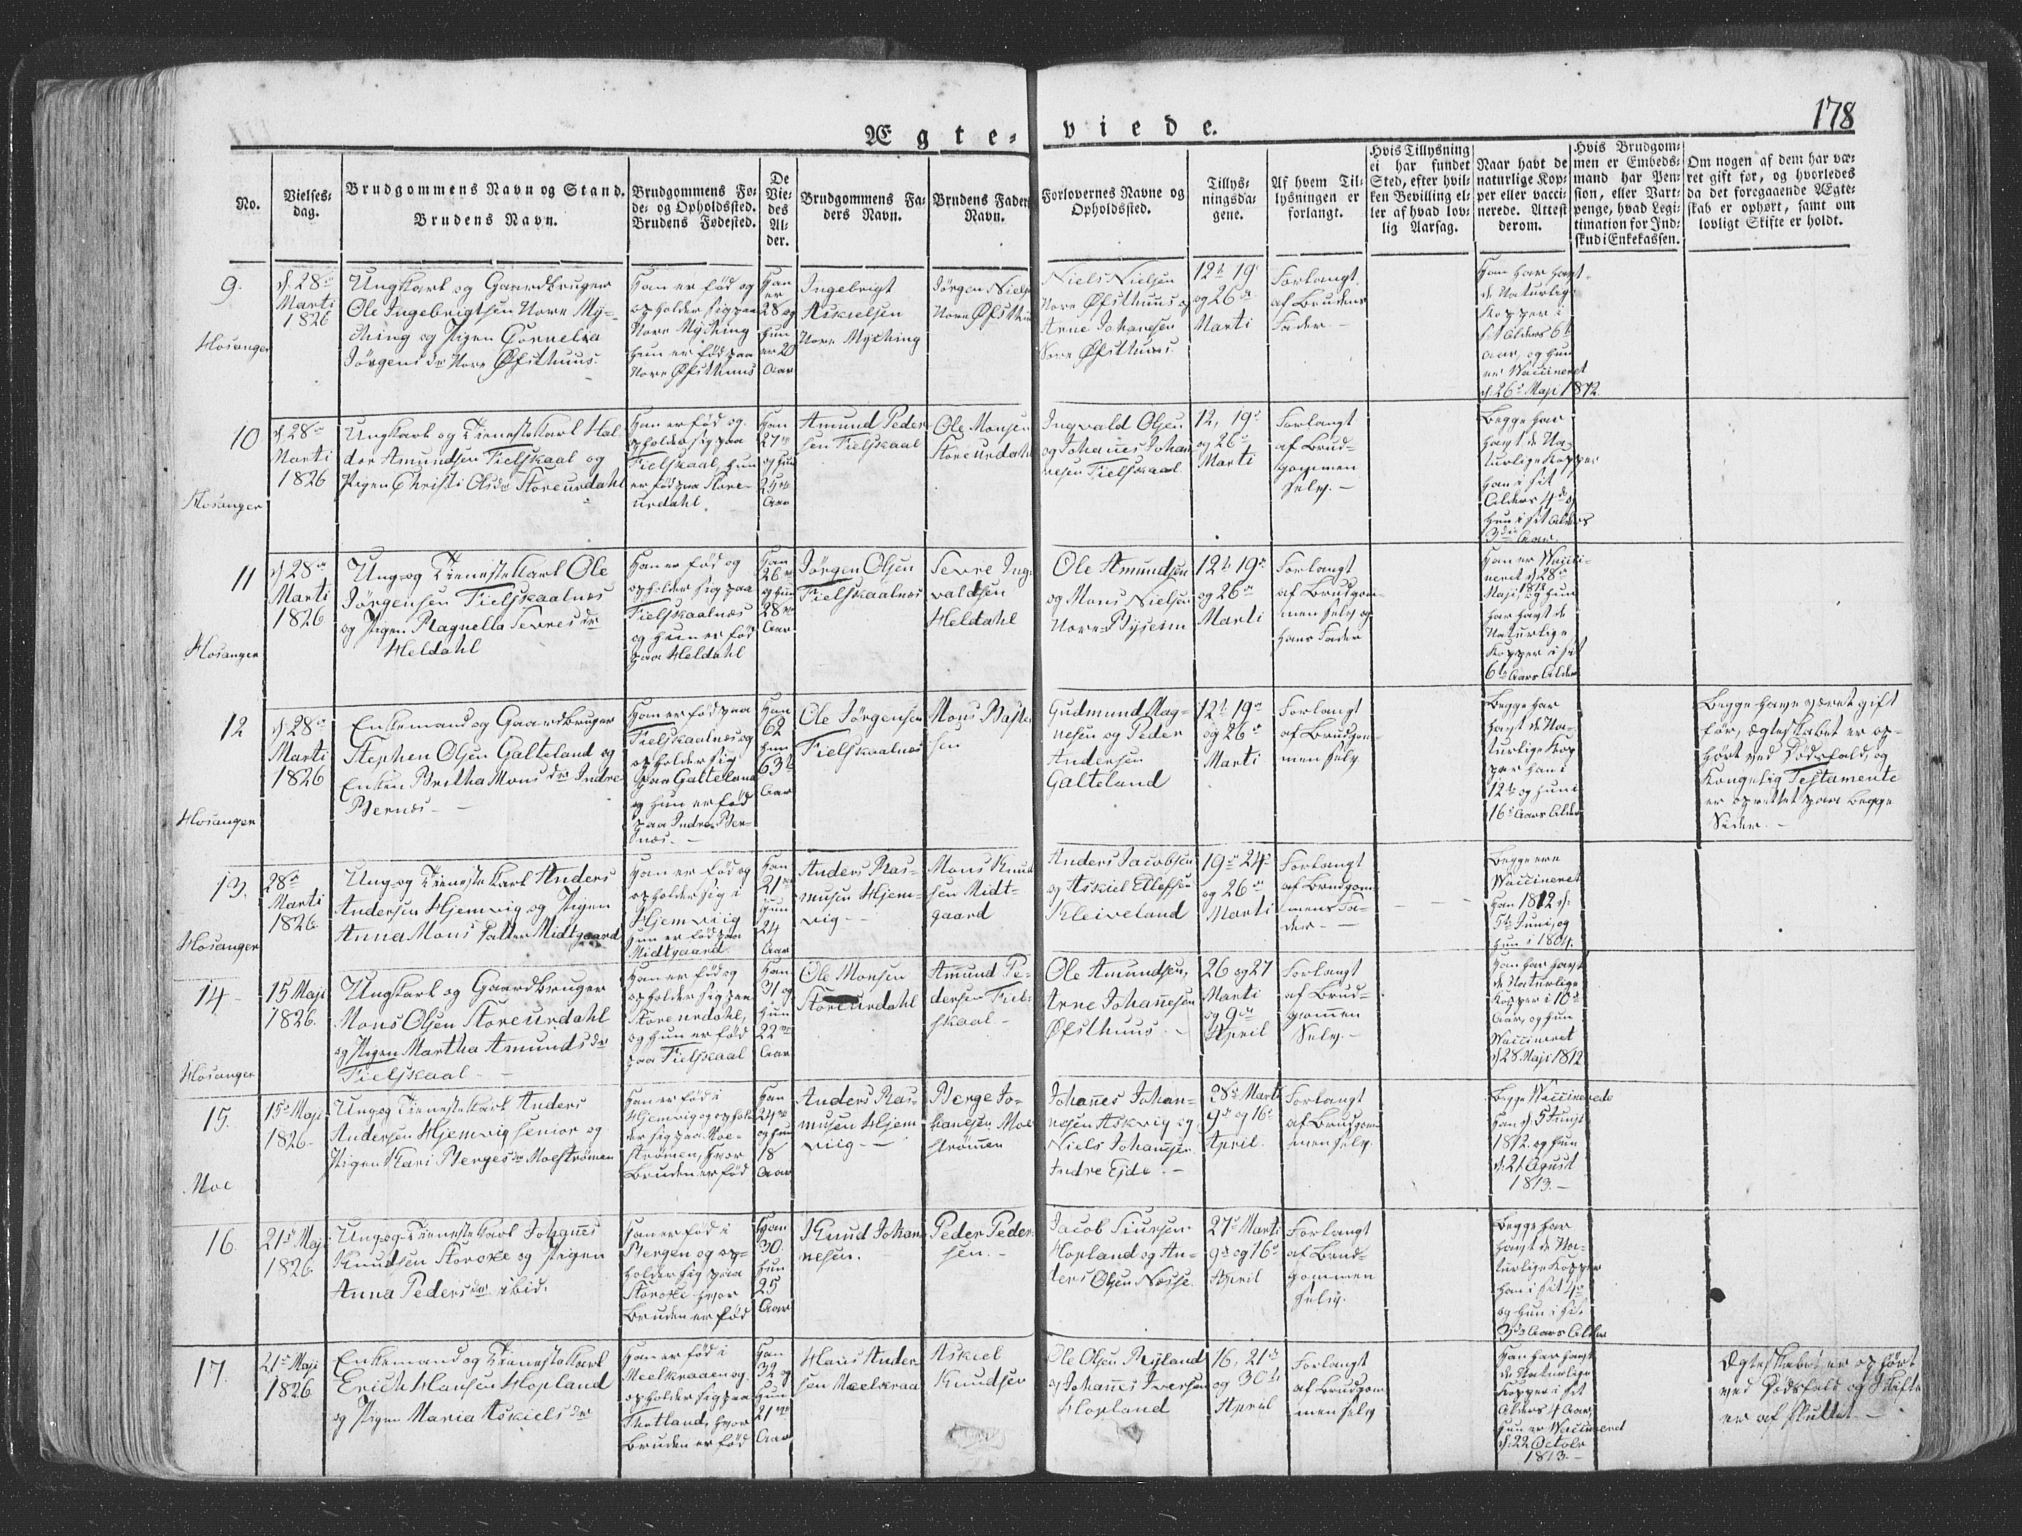 178
Ægte-viede.
No.
Vielses-
dag.
Brudgommens Navn og Stand.
Brudens Navn.
Brudgommens Fø-
de- og Opholdssted.
Brudens Fødested.
De
Vie-
des
Al-
der.
Brudgommens Fa-
ders Navn.
Brudens Faders
Navn.
Forlovernes Navne og
Opholdssted.
Tillys-
ningsda-
gene.
Af hvem Til-
lysningen er
forlangt.
Hvis Tillysning
ei har fundet
Sted, efter hvil-
ken Bevilling el-
ler af hvad lov-
lig Aarsag.
Naar havt de
naturlige Kop-
per eller vacci-
nerede. Attest
derom.
Hvis Brudgom-
men er Embeds-
mand har Pen-
sion, eller Vart-
penge, hvad Legi-
timation for Ind-
skud i Enkekassen.
Om nogen af dem har væ-
ret gift før, og hvorledes
da det foregaaende Ægte-
skab er ophørt, samt om
lovligt Skifte er holdt.
9.
Hosanger
d. 28de
Marti
1826
Ungkarl og Gaardbruger
Ole Ingebrigtsen Nore My-
ching og Pigen Cornelia
Jörgensdr Nore Øfsthuus.
Han er fød og
opholder sig paa
Nore Myching
hun er fød paa
Nore Øfsthuus
Han
er
28 og
hun
er 20
Aar
Ingebrigt
Askielsen
Nore Myching
Jörgen Niels
Nore Øfsthuus
Niels Nielsen
Nore Øfsthuus og
Arne Johanesen
Nore Øfsthuus.
12te 19de
og 26de
Marti
Forlangt
af Brudens
Fader –
Han har havt
de Naturlige
Kopper i
sit Alders 6te
Aar, og hun
er Waccineret
d. 26de Maji 1812.
10
Hosanger
d. 28de
Marti
1826
Ungkarl og Tienestekarl Hal-
dor Amundsen Fielskaal og
Pigen Christi Olsdr Storeurdahl
Han er fød og
opholder sig paa
Fielskaal, hun
er fød paa Store-
urdahl.
Han
27
og hun
24
Aar
Amund Peder
sen Fielskaal
Ole Monsen
Storeurdahl
Ingvald Olsen
og Johannes Johan-
nesen Fielskaal.
12, 19de
og 26de
Marti
Forlangt
af Brud-
gommen
selv. –
Begge har
havt de Na-
turlige Kopper
han i sit
Alders 4de og
hun i sit Alders
3die Aar.
11
Hosanger
d. 28de
Marti
1826
Ung og Tienestekarl Ole
Jörgensen Fielskaalnes
og Pigen Magnella Sevresdr
Heldahl
Han er fød og
opholder sig paa
Fielskaalnæs
og hun er fød
paa Heldahl
Han
26
og hun
28
Aar
Jörgen Olsen
Fielskaalnæs
Sevre Ing
valdsen
Heldahl
Ole Amundsen
og Mons Nielsen
Nore-Bysem
12te 19de
og 26de
Marti
Forlangt
af Brudgom-
men selv og
hans Fader
Han er Wacci-
neret d. 28de
Maji 1812 og hun
har havt de
Naturlige
Kopper i sit
6te Aars Alder
12
Hosanger
d. 28de
Marti
1826
Enkemand og Gaardbruger
Stephen Olsen Galteland og
Enken Britha Monsdr Indre-
Bernæs –
Han er fød paa
Fielskaalnæs og
opholder sig
paa Galteland
og hun er fød
paa Indre Ber-
næs. –
Han
62
hun
63
Aar
Ole Jörgensen
Fielskaalnæs
Mons
sen
Gudmund Mag-
nesen og Peder
Andersen
Galteland
12te 19de
og 26de
Marti
Forlangt
af Brudgom-
men selv
Begge har
havt de Na-
turlige Kop
per han i
12te og hun i
16de Aars Alder
Begge have været gift
før, ægteskabet er op-
hørt ved Dødsfald, og
Kongelig Testamente
er oprettet paa begge
Sider. –
13.
Hosanger
28de
Marti
1826.
Ung og Tienestekarl Anders
Andersen Hjemvig og Pigen
Anna Mons Datter Midtgaard
Han er fød og
opholder sig i
Hjemviig
hun er fød paa
Midtgaard
Han
21
hun
24
Aar
Anders Ras-
musen Hjem-
vig –
Mons Knud
sen Midt-
gaard
Anders Jacobsen
og Askiel Ellefsen
Kleiveland
19de 24de
og 26de
Marti
Forlangt
af Brudgom
mens Fa-
der. –
Begge ere
Waccineret
han 1812 d.
5te Juni, og
hun i 1804.
14
Hosanger
15 Maji
1826.
Ungkarl og Gaardbruger
Mons Olsen Storeurdahl
og Pigen Martha Amundsdr
Fielskaal –
Han er fød og
opholder sig paa
Storeurdahl,
og hun er fød
paa Fielskaal
Han
31 og
hun
22
Aar
Ole Monsen
Storeurdahl
Amund Pe-
dersen Fiel-
skaal –
Ole Amundsen,
Arne Johannesen
Øfsthuus. –
26 og 27
Marti
og 9de
April
Forlangt
af Brud-
gommen
Selv. –
Han har havt
de Naturlige
Kopper i 10de
Aar, og hun
Waccineret
d. 28 Maji 1812
15.
Moe
15de Maji
1826.
Ung og Tienestekarl Anders
Andersen Hjemvig senior og
Pigen Kari Bergesdr Moeströmen
Han er fød i
Hjemvig og ophol-
der sig paa Moe-
strömen, hvor
Bruden er fød
Han
24
og hun
18
Aar
Anders Ras-
musen Hjem
viig –
Berge Jo-
hanesen Moe
strömen
Johannes Johan-
nesen Askvig og
Niels Johannsen
Indre Eide. –
28de Marti
9de og 16de
April.
Forlangt
af Brudgom
men selv.
Begge Waccinerede
han d. 5 Junji
1812. og hun
d. 21 Agust
1813. –
16.
21de Maji
1826
Ung og Tienestekarl Johannes
Knudsen Storoxe og Pigen
Anna Pedersdr ibid.
Han er fød i
Bergen og op-
holder sig paa
Storoxe hvor
Bruden er fød
Han
30.
hun
25
Aar
Knud Johan
nesen.
Peder Peder
sen. –
Jacob Siursen
Hopland og An-
ders Olsen Nosse.
27de Marti
9de og 16de
April
Forlangt
af Brud-
gommen
selv.
Begge har
havt de Na-
turlige Kopper
han i sit 4de
og hun i sit
3die Aars Alder
17.
21de Maji
1826
Enkemand og Tienestekarl
Erich Hansen Hopland
og Pigen Maria Askielsdr
Han er fød i
Meelkraaen og
opholder sig paa
Hopland, hvor
Bruden er fød
Han
32 og
hun
21
Aar
Hans Ander
sen Meelkraa
Askiel
Knudsen
Ole Olsen Byland
og Johannes Iversen
Hopland
16, 21de
og 30te
April
Forlangt
af Brudgom
men selv
Han har havt
de Naturlige
Kopper i sit
Alders 4 Aar,
hun er Waccineret
d. 22 Octobr
1813. –
Ægteskabet er ophørt
ved Dødsfald og Skifte
er af sluttet –